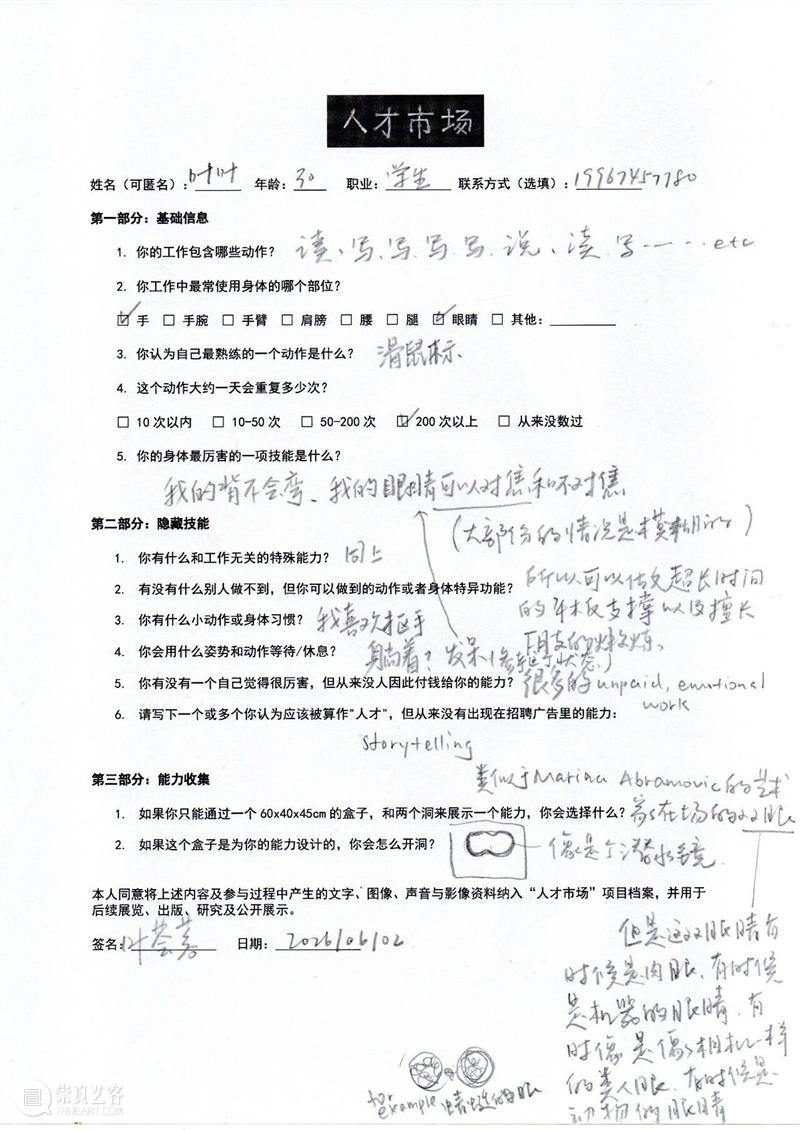 人才市场
姓名（可匿名）：叶叶 年龄：30 职业：学生 联系方式（选填）：19967457780
第一部分：基础信息
1. 你的工作包含哪些动作？ 读、写、写、写、写、说、读、写……etc
2. 你工作中最常使用身体的哪个部位？
☑ 手 □ 手腕 □ 手臂 □ 肩膀 □ 腰 □ 腿 ☑ 眼睛 □ 其他：
3. 你认为自己最熟练的一个动作是什么？ 滑鼠标、
4. 这个动作大约一天会重复多少次？
□ 10 次以内 □ 10-50 次 □ 50-200 次 ☑ 200 次以上 □ 从来没数过
5. 你的身体最厉害的一项技能是什么？
我的背不会弯、我的眼睛可以对焦和不对焦
（大部份的情况是模糊的）
第二部分：隐藏技能
1. 你有什么和工作无关的特殊能力？ 同上
2. 有没有什么别人做不到，但你可以做到的动作或者身体特异功能？
所以可以做超长时间
的平板支撑以及擅长
3. 你有什么小动作或身体习惯？ 我喜欢抠手
4. 你会用什么姿势和动作等待/休息？ 躺着？发呆
5. 你有没有一个自己觉得很厉害，但从来没人因此付钱给你的能力？ 很多的unpaid, emotional
work
6. 请写下一个或多个你认为应该被算作"人才"，但从来没有出现在招聘广告里的能力：
storytelling
第三部分：能力收集
类似于Marina Abramovic的艺术
1. 如果你只能通过一个 60x40x45cm 的盒子，和两个洞来展示一个能力，你会选择什么？ 家在场的双眼
2. 如果这个盒子是为你的能力设计的，你会怎么开洞？ 像是个潜水镜
本人同意将上述内容及参与过程中产生的文字、图像、声音与影像资料纳入“人才市场”项目档案，并用于
后续展览、出版、研究及公开展示。
签名：叶 日期：2026/06/02
但是这双眼睛有
时候是肉眼、有时候
是机器的眼睛、有
时候是像相机一样
的类人眼、有时候是
动物的眼睛
for
example 蜻蜓的眼
崇真艺客
TRUEART.COM